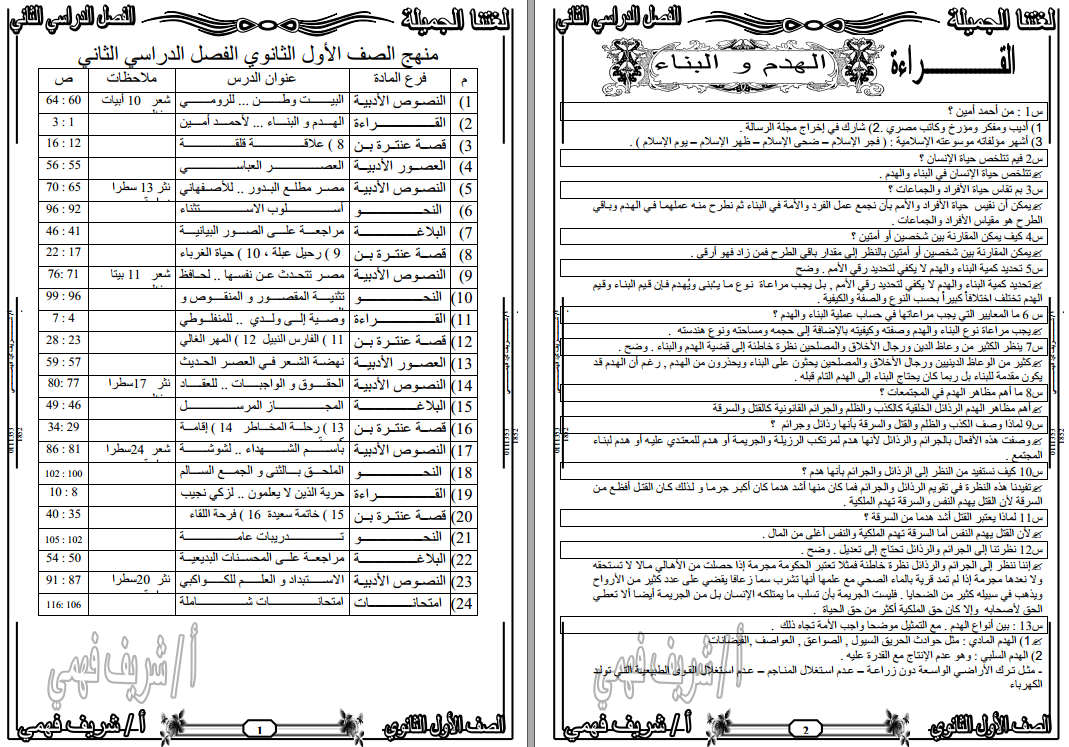 لغتنا الجميلة
الفصل الدراسي الثاني
منهج الصف الأول الثانوي الفصل الدراسي الثاني
م فرع المادة عنوان الدرس ملاحظات ص
1) النصوص الأدبية البيت وطن ... للرومي شعر 10 أبيات 60 : 64
2) القراءة الهدم و البناء ... لأحمد أمين 1 : 3
3) قصة عنترة بن 8 ) علاقة قلقة 12 : 16
4) العصور الأدبية العصر العباسي 55 : 56
5) النصوص الأدبية مصر مطلع البدور .. للأصفهاني نثر 13 سطرا 65 : 70
6) النحو أسلوب الاستثناء 92 : 96
7) البلاغة مراجعة على الصور البيانية 41 : 46
8) قصة عنترة بن 9 ) رحيل عبلة ، 10 ) حياة الغرباء 17 : 22
9) النصوص الأدبية مصر تتحدث عن نفسها .. لحافظ شعر 11 بيتا 71 :76
10) النحو تثنية المقصور و المنقوص و 96 : 99
11) القراءة وصية إلى ولدي .. للمنفلوطي 4 : 7
12) قصة عنترة بن 11 ) الفارس النبيل 12 ) المهر الغالي 23 : 28
13) العصور الأدبية نهضة الشعر في العصر الحديث 57 : 59
14) النصوص الأدبية الحقوق و الواجبات .. للعقاد نثر 17سطرا 77 :80
15) البلاغة المجاز المرسل 46 : 49
16) قصة عنترة بن 13 ) رحلة المخاطر 14 ) إقامة 29 :34
17) النصوص الأدبية باسم الشهداء .. لشوشة شعر 24سطرا 81 : 86
18) النحو الملحق بالثنى و الجمع السالم 100 : 102
19) القراءة حرية الذين لا يعلمون .. لزكي نجيب 8 : 10
20) قصة عنترة بن 15 ) خاتمة سعيدة 16 ) فرحة اللقاء 35 : 40
21) النحو تدريبات عامة 102 : 105
22) البلاغة مراجعة على المحسنات البديعية 50 : 54
23) النصوص الأدبية الاستبداد و العلم للكواكبي نثر 20سطرا 87 : 91
24) امتحانات امتحانات شاملة 106 :116
أ/ شريف فهمي
الصف الأول الثانوي
1
أ / شريف فهمي
لغتنا الجميلة
الفصل الدراسي الثاني
القراءة
الهدم و البناء
س1 : من أحمد أمين ؟
1) أديب ومفكر ومؤرخ وكاتب مصري .2) شارك في إخراج مجلة الرسالة .
3) أشهر مؤلفاته موسوعته الإسلامية : ( فجر الإسلام – ضحى الإسلام – ظهر الإسلام – يوم الإسلام ) .
س2 فيم تتلخص حياة الإنسان ؟
تتلخص حياة الإنسان في البناء والهدم .
س3 بم تقاس حياة الأفراد والجماعات ؟
يمكن أن نقيس حياة الأفراد والأمم بأن نجمع عمل الفرد والأمة في البناء ثم نطرح منه عملهما في الهدم وباقي
الطرح هو مقياس الأفراد والجماعات .
س4 كيف يمكن المقارنة بين شخصين أو أمتين ؟
يمكن المقارنة بين شخصين أو أمتين بالنظر إلى مقدار باقي الطرح فمن زاد فهو أرقى .
س5 تحديد كمية البناء والهدم لا يكفي لتحديد رقي الأمم . وضح
تحديد كمية البناء والهدم لا يكفي لتحديد رقي الأمم , بل يجب مراعاة نوع ما يُبنى ويُهدم فإن قيم البناء وقيم
الهدم تختلف اختلافاً كبيراً بحسب النوع والصفة والكيفية .
س 6 ما المعايير التي يجب مراعاتها في حساب عملية البناء والهدم ؟
يجب مراعاة نوع البناء والهدم وصفته وكيفيته بالإضافة إلى حجمه ومساحته ونوع هندسته .
س7 ينظر الكثير من وعاظ الدين ورجال الأخلاق والمصلحين نظرة خاطئة إلى قضية الهدم والبناء . وضح .
كثير من الوعاظ الدينيين ورجال الأخلاق والمصلحين يحثون على البناء ويحذرون من الهدم , رغم أن الهدم قد
يكون مقدمة للبناء بل ربما كان يحتاج البناء إلى الهدم التام قبله .
س8 ما أهم مظاهر الهدم في المجتمعات ؟
أهم مظاهر الهدم الرذائل الخلقية كالكذب والظلم والجرائم القانونية كالقتل والسرقة
س9 لماذا وصف الكذب والظلم والقتل والسرقة بأنها رذائل وجرائم ؟
وصفت هذه الأفعال بالجرائم والرذائل لأنها هدم لمرتكب الرزيلة والجريمة أو هدم للمعتدي عليه أو هدم لبناء
المجتمع .
س10 كيف نستفيد من النظر إلى الرذائل والجرائم بأنها هدم ؟
تفيدنا هذه النظرة في تقويم الرذائل والجرائم فما كان منها أشد هدما كان أكبر جرما و لذلك كان القتل أفظع من
السرقة لأن القتل يهدم النفس والسرقة تهدم الملكية .
س11 لماذا يعتبر القتل أشد هدما من السرقة ؟
لأن القتل يهدم النفس أما السرقة تهدم الملكية والنفس أغلى من المال .
س12 نظرتنا إلى الجرائم والرذائل تحتاج إلى تعديل . وضح .
إننا ننظر إلى الجرائم والرذائل نظرة خاطئة فمثلا تعتبر الحكومة مجرمة إذا حصلت من الأهالي مالا لا تستحقه
ولا نعدها مجرمة إذا لم تمد قرية بالماء الصحي مع علمها أنها تشرب سما زعافا يقضي على عدد كثير من الأرواح
ويذهب في سبيله كثير من الضحايا . فليست الجريمة بأن تسلب ما يمتلكه الإنسان بل من الجريمة أيضا ألا تعطي
الحق لأصحابه وإلا كان حق الملكية أكثر من حق الحياة .
س13: بين أنواع الهدم . مع التمثيل موضحا واجب الأمة تجاه ذلك .
1) الهدم المادي : مثل حوادث الحريق السيول , الصواعق , العواصف ,الفيضانات
2) الهدم السلبي : وهو عدم الإنتاج مع القدرة عليه .
- مثل ترك الأراضي الواسعة دون زراعة – عدم استغلال المناجم – عدم استغلال القوى الطبيعية التي تولد
الكهرباء
أ/ شريف فهمي
الصف الأول الثانوي
2
أ / شريف فهمي